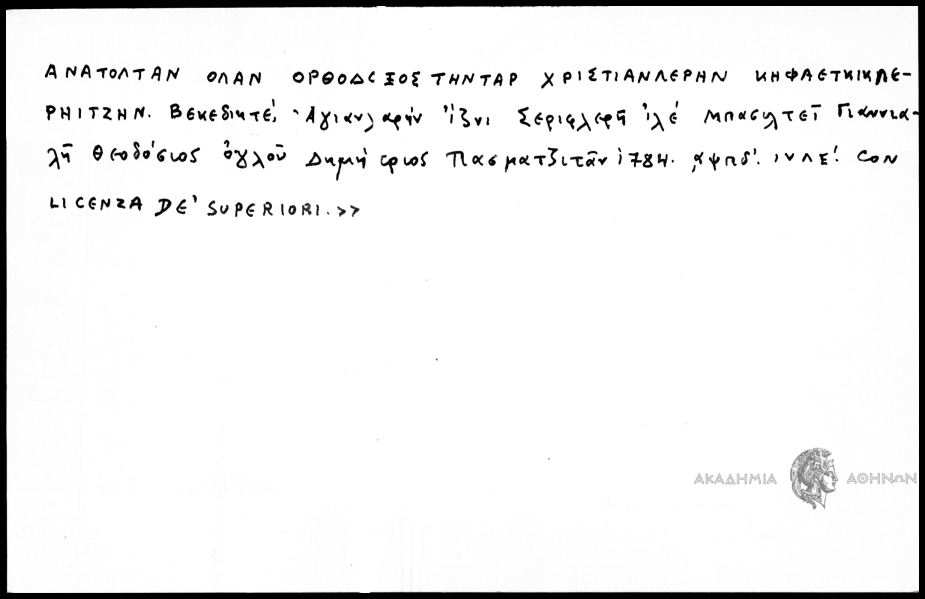 ΑΝΑΤΟΛΤΑΝ ΟΛΑΝ ΟΡΘΟΔΟΞΟΣ ΤΗΝΤΑΡ ΧΡΙΣΤΙΑΝΛΕΡΗΝ ΚΗΦΑΕΤΚΙΚΛΕ-
ΡΗΙΤΖΗΝ. Βενεδικτέ, Ἀγιανλαρήν ἴζνι Σεριφλερῆ ἰλέ μπασιλτεῖ Γιαννια-
λῆ Θεοδόσιος ὀγλοῦ Δημήτριος Πασματζιτᾶν 1784. ͵αψπδ'. ΙΥΛΕ! CON
LICENZA DE' SUPERIORI.>>
ΑΚΑΔΗΜΙΑ ΑΘΗΝΩΝ